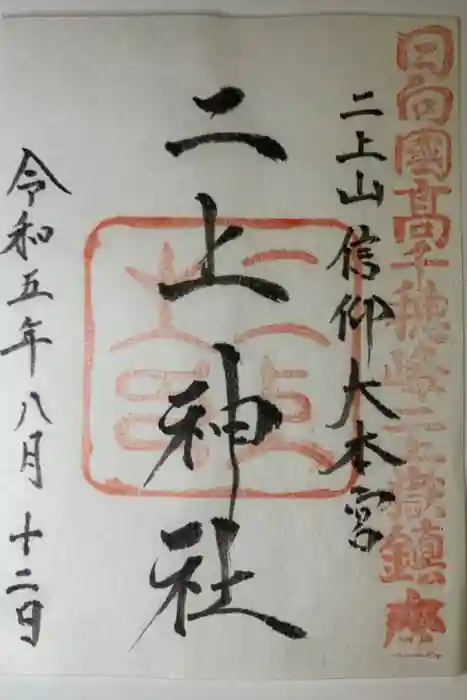 日向國高千穂峰二上嶽鎮座
二上山信仰大本宮
二上神社
令和五年八月十二日
二上
土宮